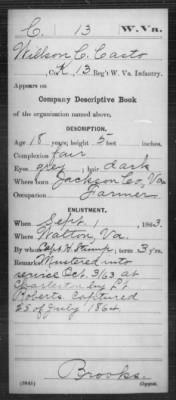 C. 13 W. Va.
Willson C. Casto
, Co. K, 13 Reg't W. Va. Infantry.
Appears on
Company Descriptive Book
of the organization named above.
DESCRIPTION.
Age 18 years; height 5 feet inches.
Complexion fair
Eyes grey; hair dark
Where born Jackson Co, Va
Occupation Farmer
ENLISTMENT.
When Sept. 1, 1863.
Where Walton, Va.
By whom Capt. H. Stump; term 3 y'rs.
Remarks: Mustered into
service Oct. 3/63 at
Charleston by Lt
Roberts. Captured
25 of July 1864.
Brooks
Copyist.